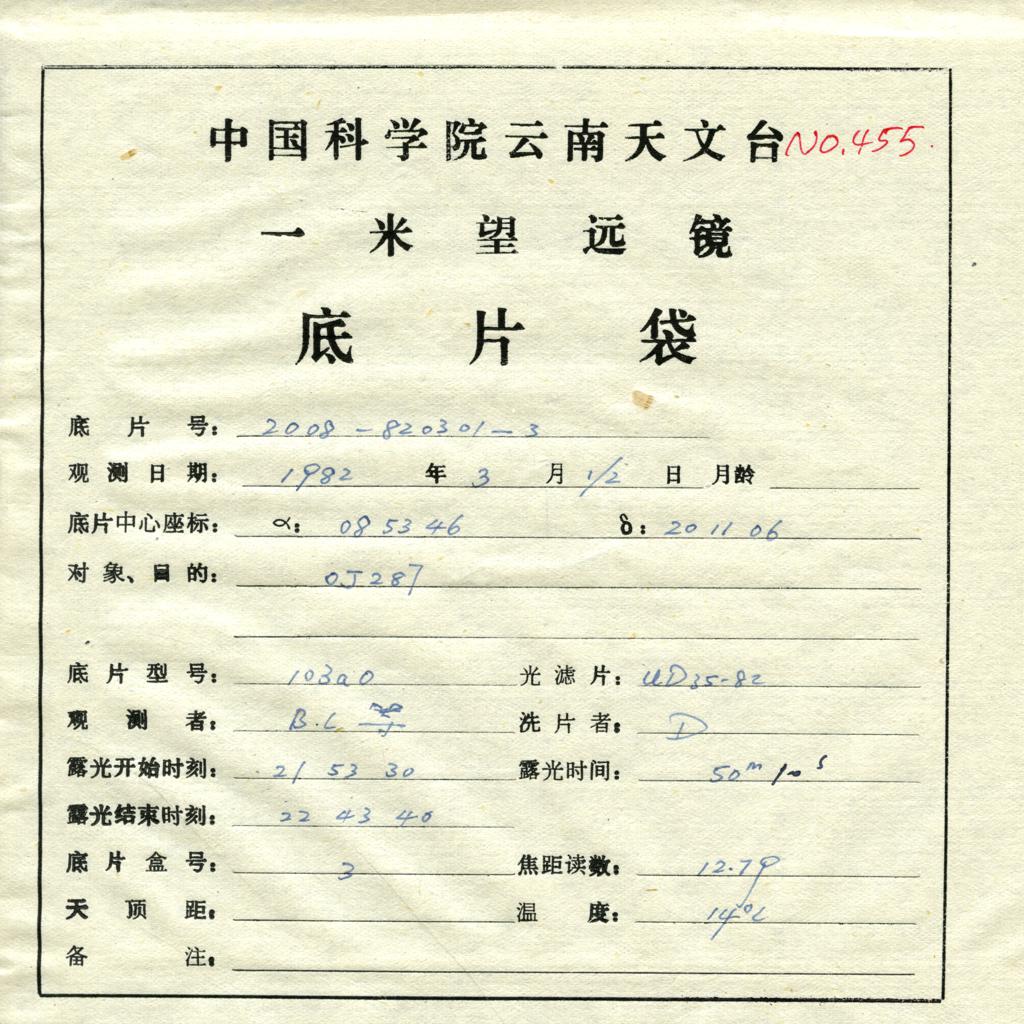 中国科学院云南天文台 NO.455.
一米望远镜
底片袋
底片号: 2008-820301-3
观测日期: 1982 年 3 月 1/2 日 月龄
底片中心座标: α: 08 53 46 δ: 20 11 06
对象、目的: OJ287
底片型号: 103aO 光滤片:
观测者: B.L 洗片者: D
露光开始时刻: 21 53 30 露光时间: 50m 10s
露光结束时刻: 22 43 40
底片盒号: 3 焦距读数: 12.79
天顶距: 温度: 14°C
备注: